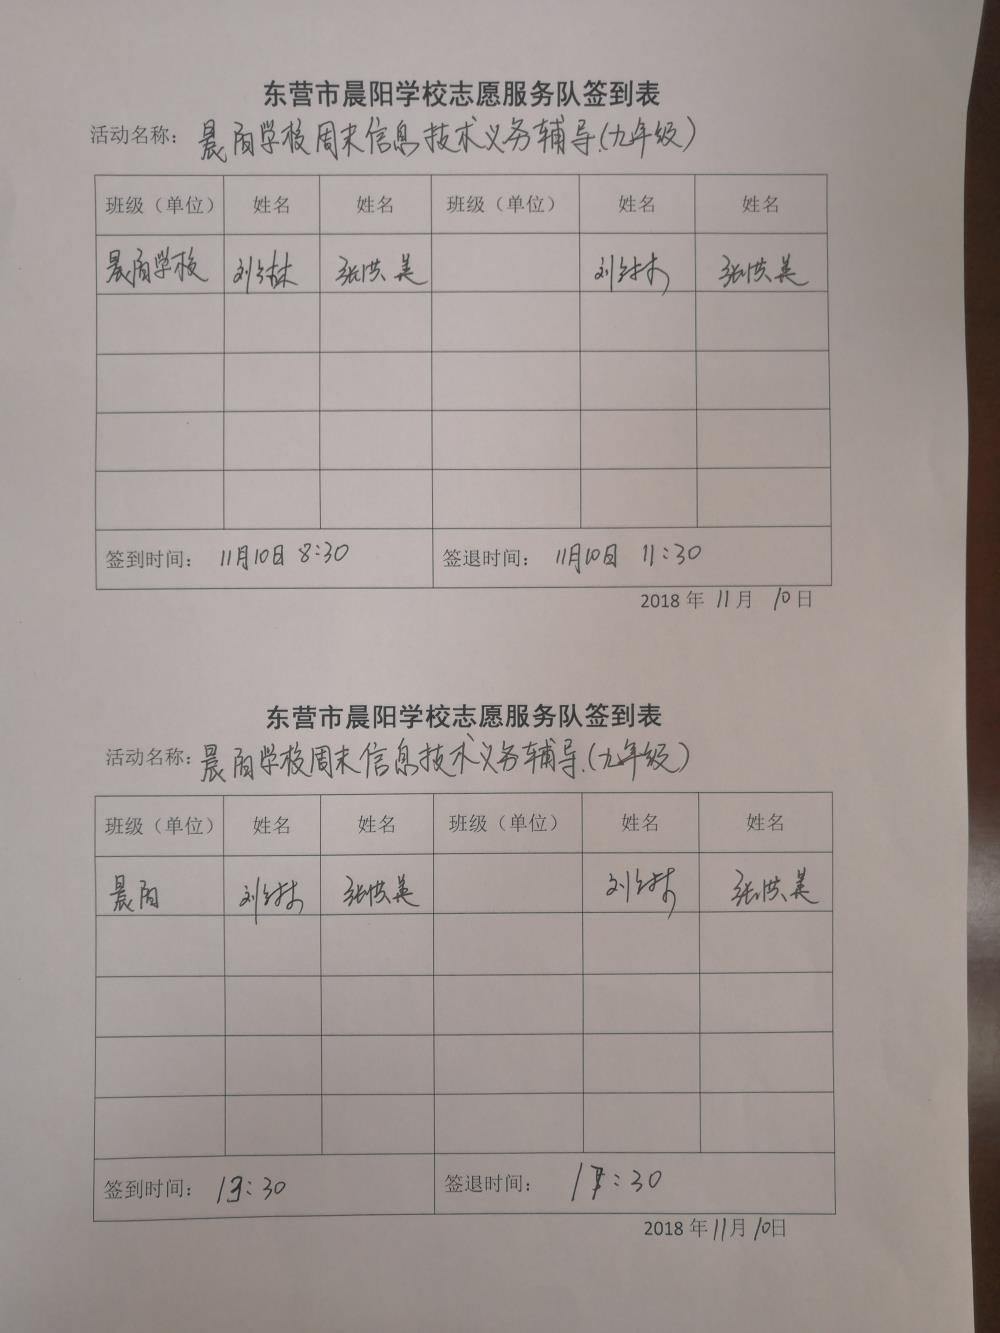 东营市晨阳学校志愿服务队签到表
活动名称：晨阳学校周末信息技术义务辅导.(九年级)
班级（单位） 姓名 姓名 班级（单位） 姓名 姓名
晨阳学校 刘 林 张洪美 刘 张洪美
签到时间： 11月10日 8:30 签退时间： 11月10日 11:30
2018 年 11 月 10 日
东营市晨阳学校志愿服务队签到表
活动名称：晨阳学校周末信息技术义务辅导.(九年级)
班级（单位） 姓名 姓名 班级（单位） 姓名 姓名
晨阳 刘 张洪美 刘 张洪美
签到时间： :30 签退时间： :30
2018 年 11 月 10 日